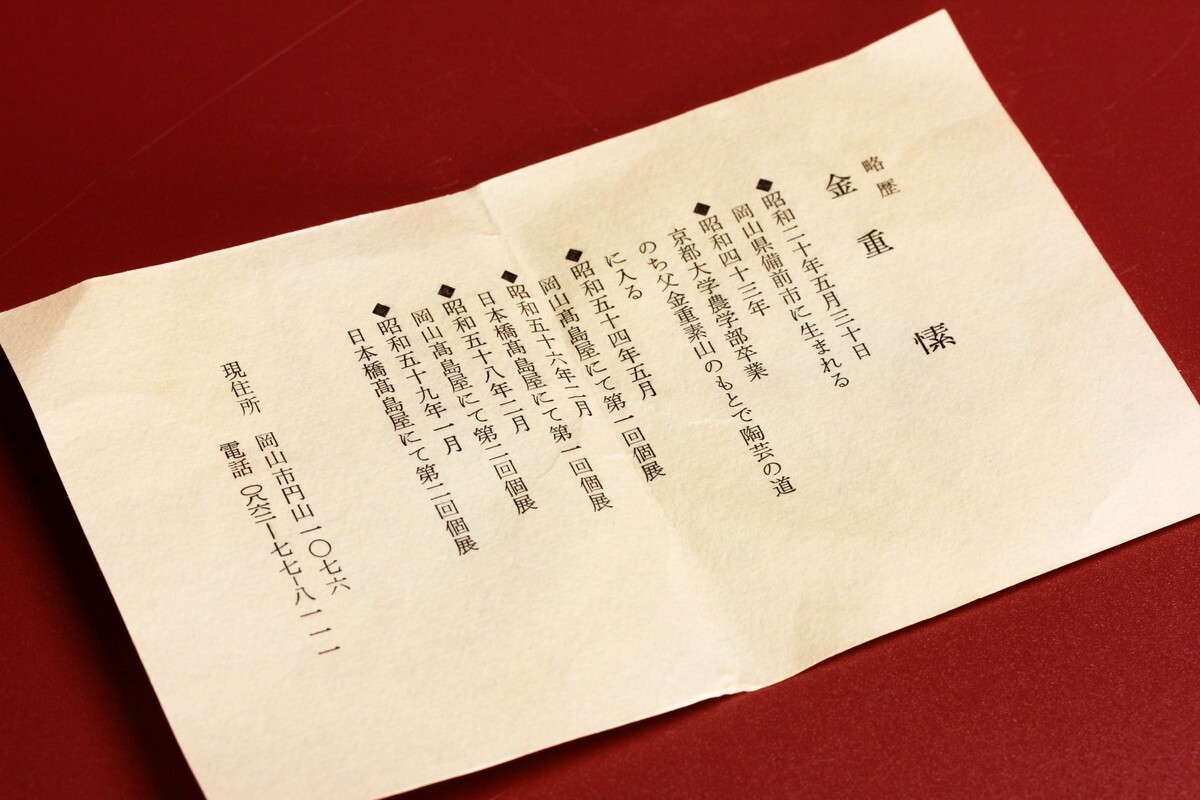 略歴
金重 愫
◆昭和二十年五月三十日
岡山県備前市に生まれる
◆昭和四十三年
京都大学農学部卒業
のち父金重素山のもとで陶芸の道
に入る
◆昭和五十四年五月
岡山髙島屋にて第一回個展
◆昭和五十六年二月
日本橋髙島屋にて第一回個展
◆昭和五十八年二月
岡山髙島屋にて第二回個展
◆昭和五十九年一月
日本橋髙島屋にて第二回個展
現住所 岡山市円山一〇七六
電話 〇八六二―七七-八一一二